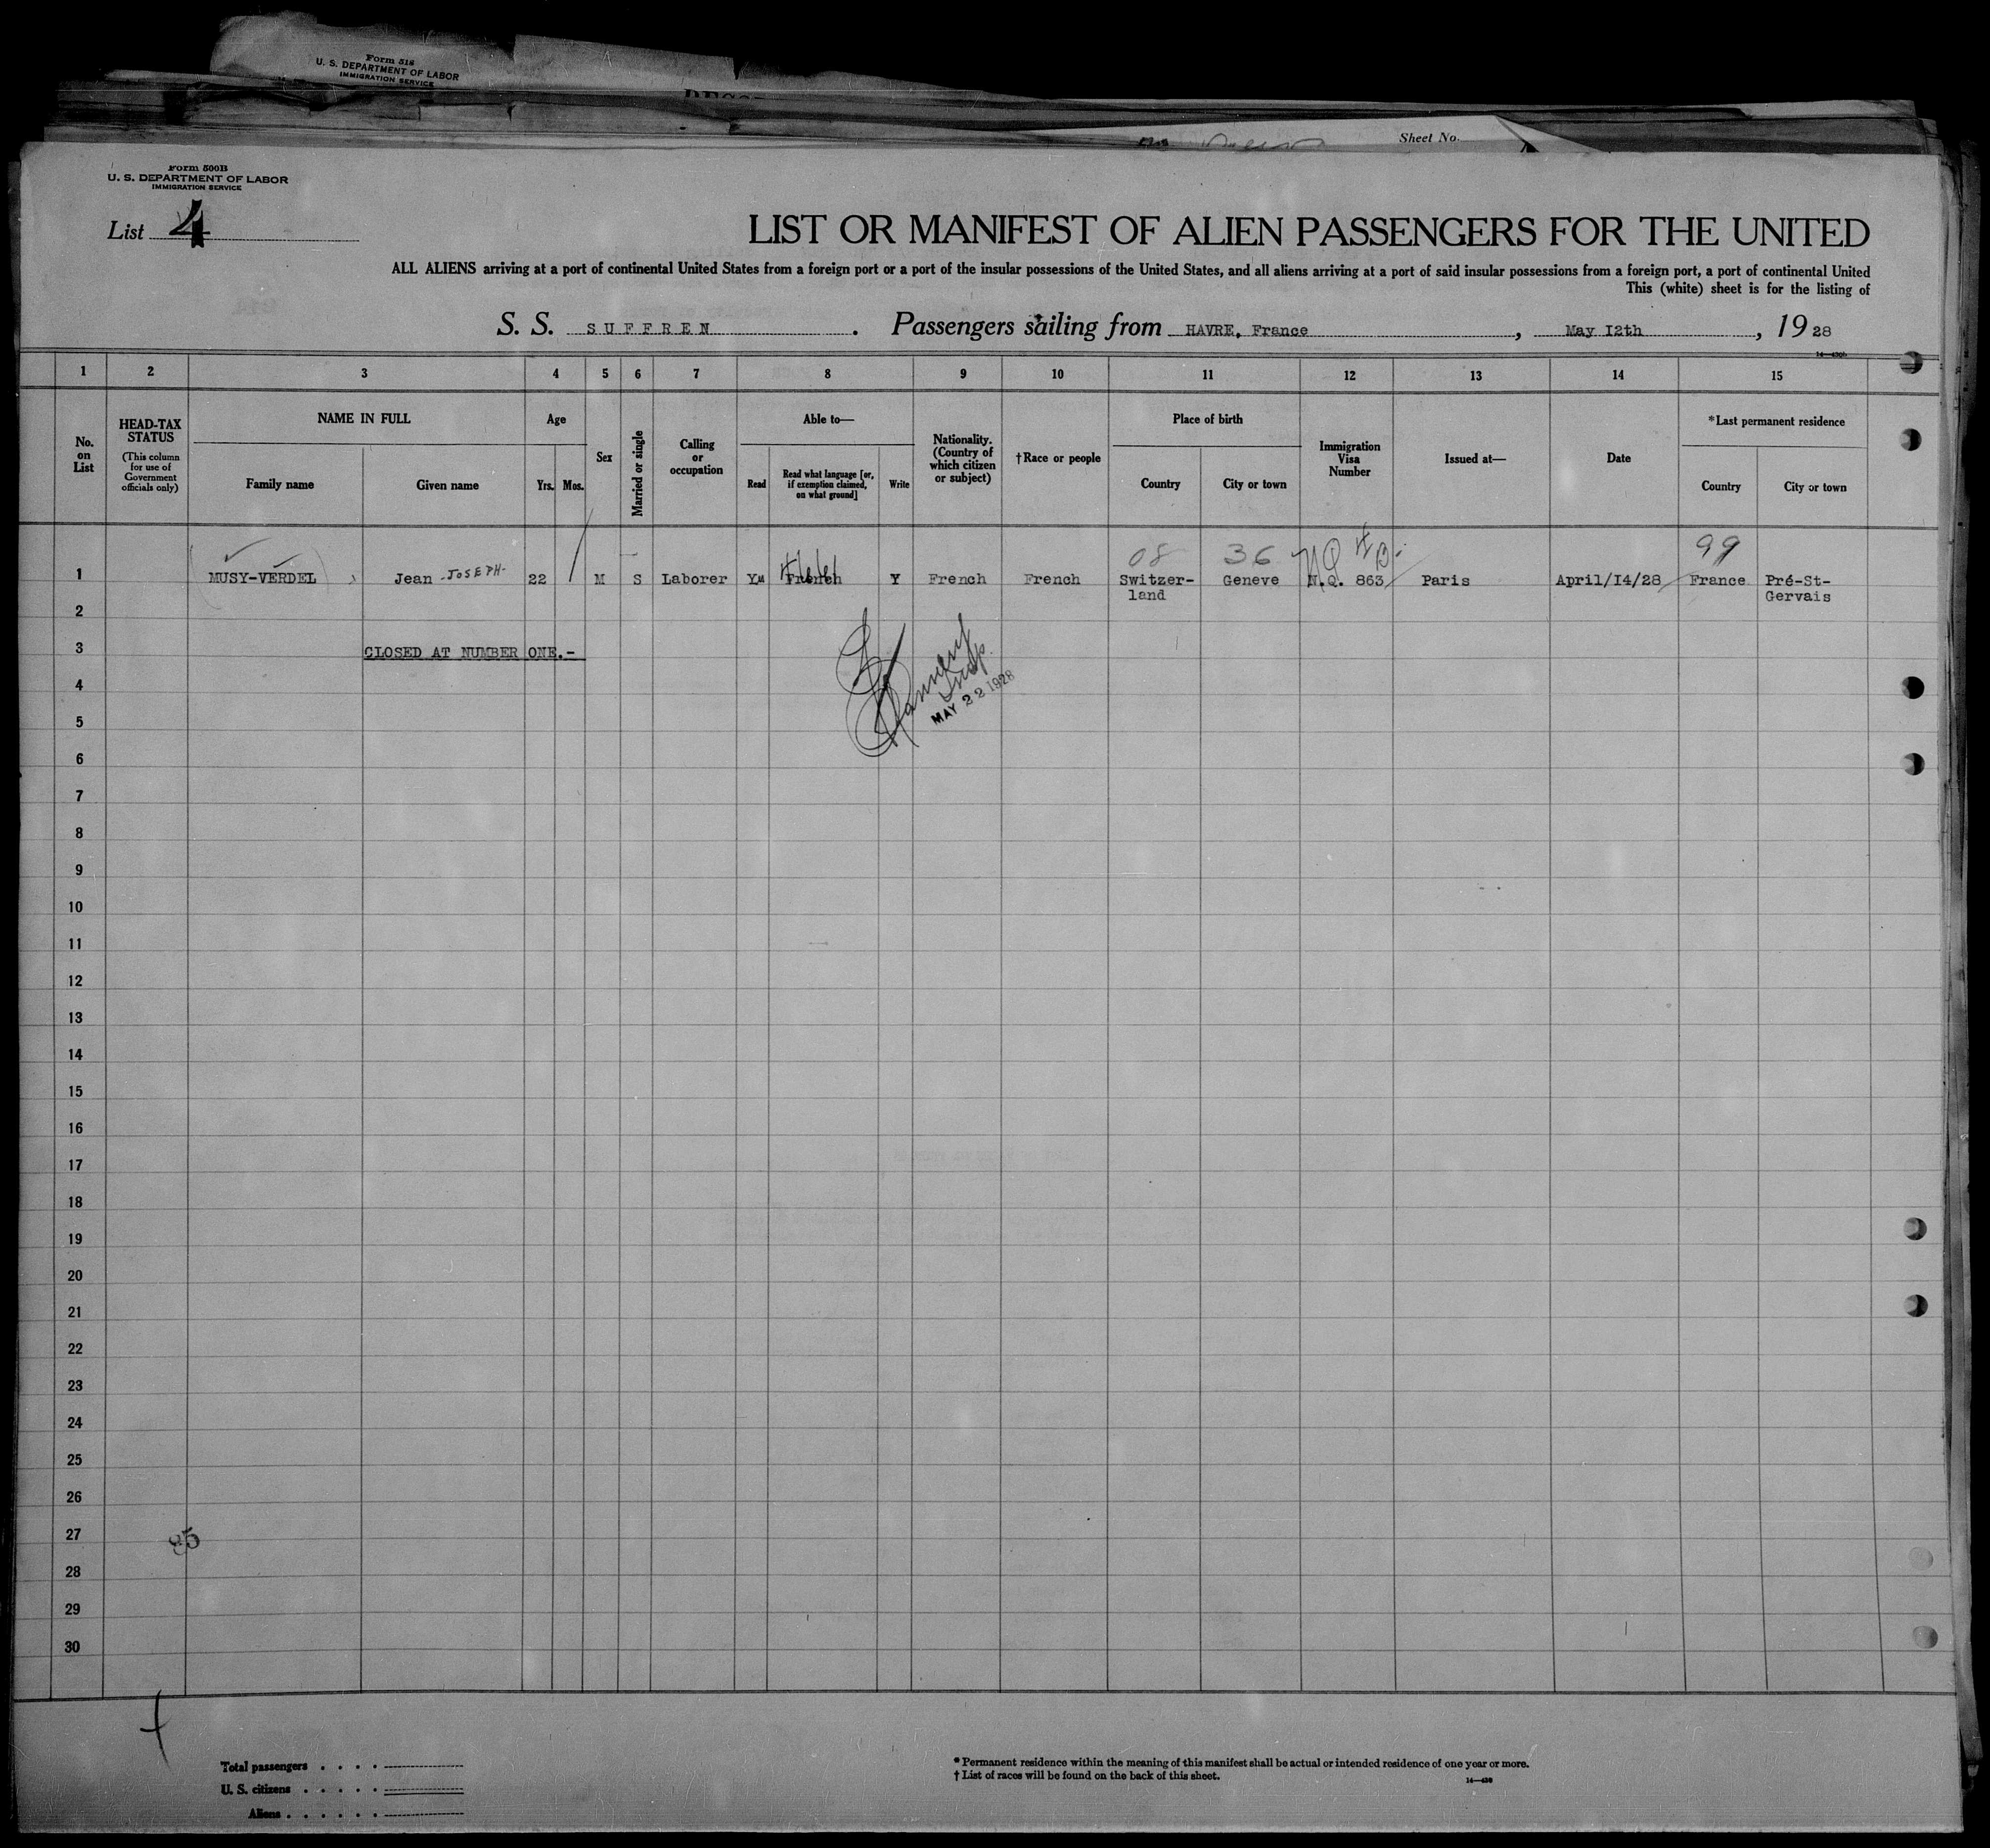 Form 518
U. S. DEPARTMENT OF LABOR
IMMIGRATION SERVICE
Sheet No.
Form 500B
U. S. DEPARTMENT OF LABOR
IMMIGRATION SERVICE
List 4
LIST OR MANIFEST OF ALIEN PASSENGERS FOR THE UNITED
ALL ALIENS arriving at a port of continental United States from a foreign port or a port of the insular possessions of the United States, and all aliens arriving at a port of said insular possessions from a foreign port, a port of continental United
This (white) sheet is for the listing of
S. S. SUFFREN . Passengers sailing from HAVRE, France , May I2th , 19 28
1 2 3 4 5 6 7 8 9 10 11 12 13 14 15
No. on List
HEAD-TAX STATUS
(This column for use of Government officials only)
NAME IN FULL
Family name
Given name
Age
Yrs.
Mos.
Sex
Married or single
Calling or occupation
Able to—
Read
Read what language [or, if exemption claimed, on what ground]
Write
Nationality. (Country of which citizen or subject)
†Race or people
Place of birth
Country
City or town
Immigration Visa Number
Issued at—
Date
*Last permanent residence
Country
City or town
08 36 NQ 99
1 MUSY-VERDEL Jean -JOSEPH- 22 M S Laborer French Y French French Switzer- Geneve N.Q. 863 Paris April/I4/28 France Pré-St-
land Gervais
2
3 CLOSED AT NUMBER ONE.-
4
MAY 22 1928
5
6
7
8
9
10
11
12
13
14
15
16
17
18
19
20
21
22
23
24
25
26
27
28
29
30
Total passengers . . . .
U. S. citizens . . . . .
Aliens . . . . . .
* Permanent residence within the meaning of this manifest shall be actual or intended residence of one year or more.
† List of races will be found on the back of this sheet.